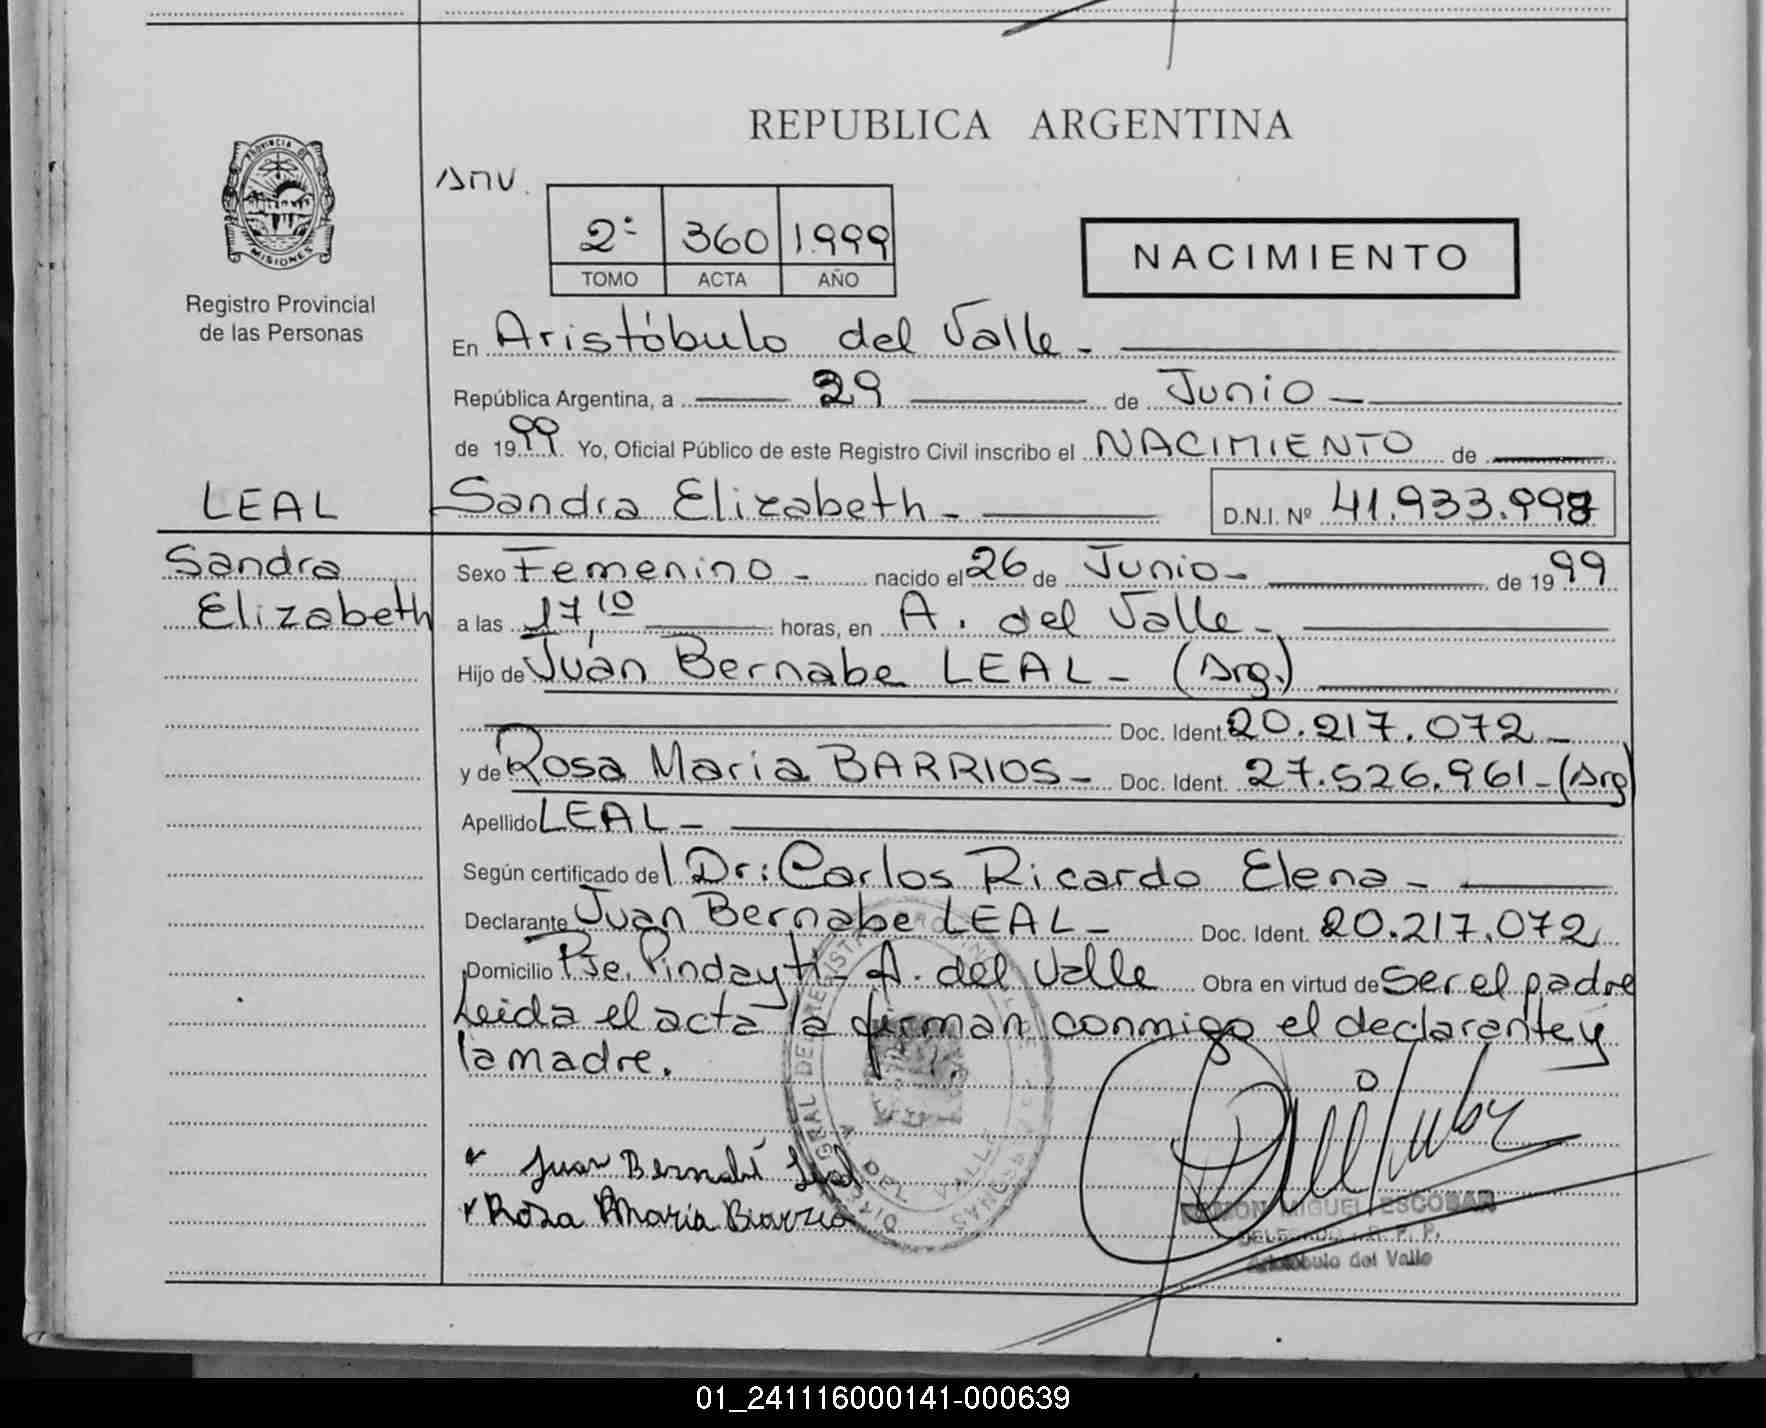 REPUBLICA ARGENTINA
PROVINCIA DE
MISIONES
Registro Provincial
de las Personas
2º 360 1.999
TOMO ACTA AÑO
NACIMIENTO
En Aristóbulo del Valle -
República Argentina, a 29 de Junio -
de 1999. Yo, Oficial Público de este Registro Civil inscribo el NACIMIENTO de
LEAL Sandra Elizabeth - D.N.I. Nº 41.933.998
Sandra
Elizabeth
Sexo Femenino - nacido el 26 de Junio - de 1999
a las 17,10 horas, en A. del Valle -
Hijo de Juan Bernabe LEAL - (Arg.)
Doc. Ident. 20.217.072 -
y de Rosa Maria BARRIOS - Doc. Ident. 27.526.961 - (Arg)
Apellido LEAL -
Según certificado del Dr: Carlos Ricardo Elena -
Declarante Juan Bernabe LEAL - Doc. Ident. 20.217.072
Domicilio Pje. Pindayti - A. del Valle Obra en virtud de ser el padre
Leida el acta la firman conmigo el declarante y
la madre.
Juan Bernabé Leal
Rosa Maria Barrios
MIGUEL ESCOBAR
R. P. P.
del Valle
01_241116000141-000639